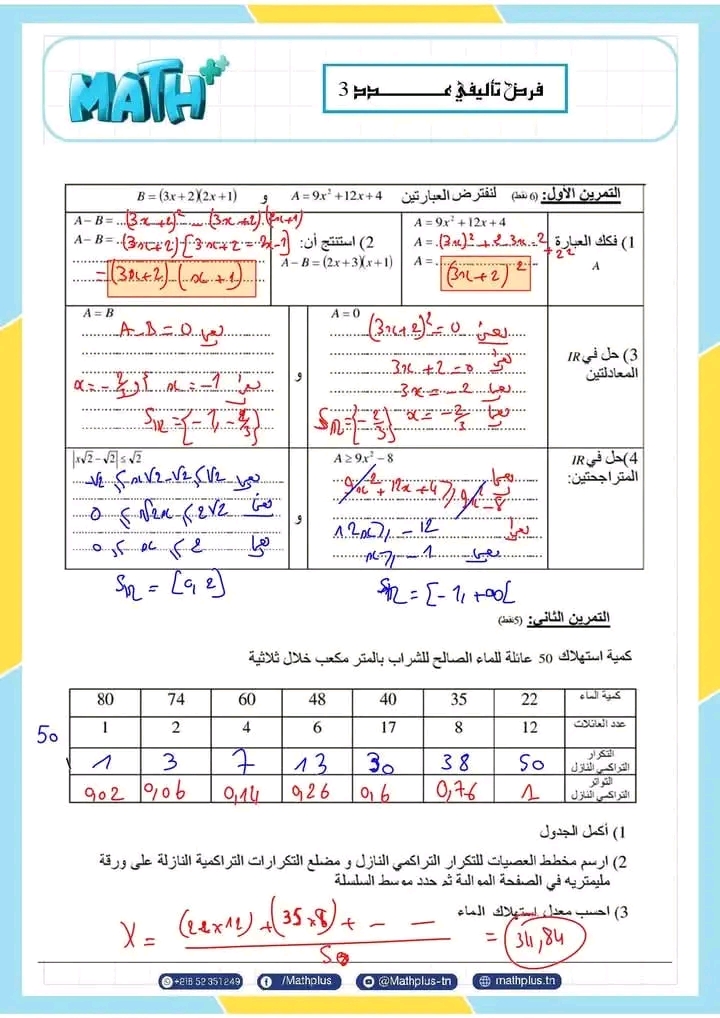 MATH++
فرض تأليفي عـــــدد 3
التمرين الأول: (6 نقط) لنفترض العبارتين A = 9x² + 12x + 4 و B = (3x + 2)(2x + 1)
1) فكك العبارة A
A = 9x² + 12x + 4
A = (3x)² + 2·3x·2 + 2²
A = (3x+2)²
2) استنتج أن:
A − B = (2x + 3)(x + 1)
A − B = (3x+2)² − (3x+2)·(2x+1)
A − B = (3x+2)[3x+2 − 2x−1]
= (3x+2)(x+1)
3) حل في IR المعادلتين
A = 0
(3x+2)² = 0 يعني
3x+2 = 0 يعني
3x = −2 يعني
x = −2/3 يعني
S_IR = {−2/3}
و
A = B
A−B = 0 يعني
x = −2/3 أو x = −1 يعني
S_IR = {−1, −2/3}
4) حل في IR المتراجحتين:
A ≥ 9x² − 8
9x² + 12x + 4 ≥ 9x² − 8 يعني
12x ≥ −12 يعني
x ≥ −1 يعني
S_IR = [−1, +∞[
و
|x√2 − √2| ≤ √2
−√2 ≤ x√2 − √2 ≤ √2 يعني
0 ≤ √2x ≤ 2√2 يعني
0 ≤ x ≤ 2 يعني
S_IR = [0, 2]
التمرين الثاني: (5 نقط)
كمية استهلاك 50 عائلة للماء الصالح للشراب بالمتر مكعب خلال ثلاثية
كمية الماء 22 35 40 48 60 74 80
عدد العائلات 12 8 17 6 4 2 1
50
التكرار التراكمي النازل 50 38 30 13 7 3 1
التواتر التراكمي النازل 1 0,76 0,6 0,26 0,14 0,06 0,02
1) أكمل الجدول
2) ارسم مخطط العصيات للتكرار التراكمي النازل و مضلع التكرارات التراكمية النازلة على ورقة
مليمتريه في الصفحة الموالية ثم حدد موسط السلسلة
3) احسب معدل استهلاك الماء
X = ((22×12) + (35×8) + − −) / 50 = 34,84
+216 52 351 249
/Mathplus
@Mathplus-tn
mathplus.tn